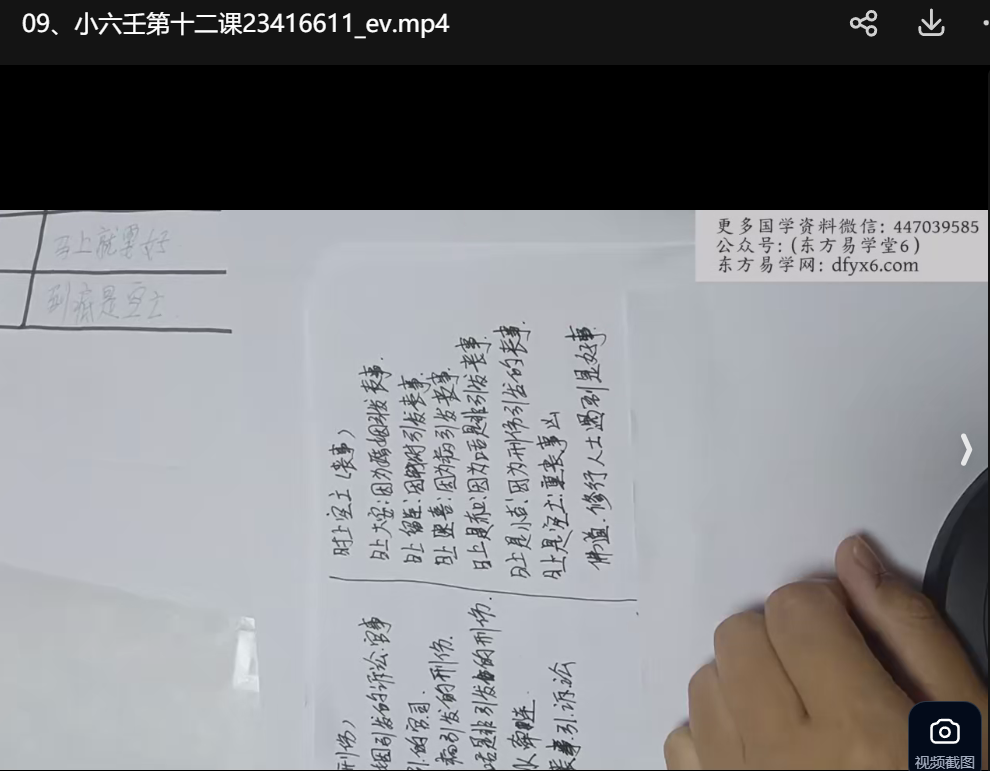 09、小六壬第十二课23416611_ev.mp4
更多国学资料微信: 447039585
公众号: (东方易学堂6)
东方易学网: dfyx6.com
马上就要好
到底是空亡
时上空亡(丧事)
日上大安:因为婚姻引发丧事.
日上留连:因 引发丧事.
日上速喜:因为病引发丧事.
日上是赤口:因为口舌是非引发丧事.
日上是小吉:因为刑伤引发的丧事.
日上是空亡:重丧事凶
佛道、修行人士遇到是好事.
刑伤)
姻引发的诉讼.官事
引.的官司.
病引发的刑伤.
口舌是非引发的刑伤.
牵连
丧事引.诉讼
视频截图